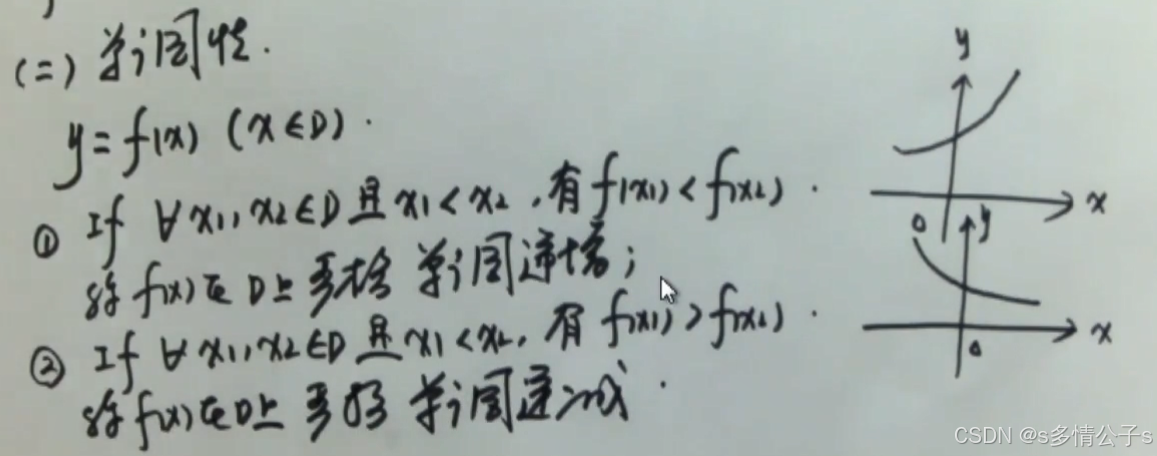 (二) 单调性.
y = f(x) (x∈D).
① If ∀x₁,x₂∈D且x₁<x₂,有f(x₁)<f(x₂).
称f(x)在D上严格单调递增;
② If ∀x₁,x₂∈D且x₁<x₂,有f(x₁)>f(x₂).
称f(x)在D上严格单调递减.
y
x
0
y
x
0
CSDN @s多情公子s